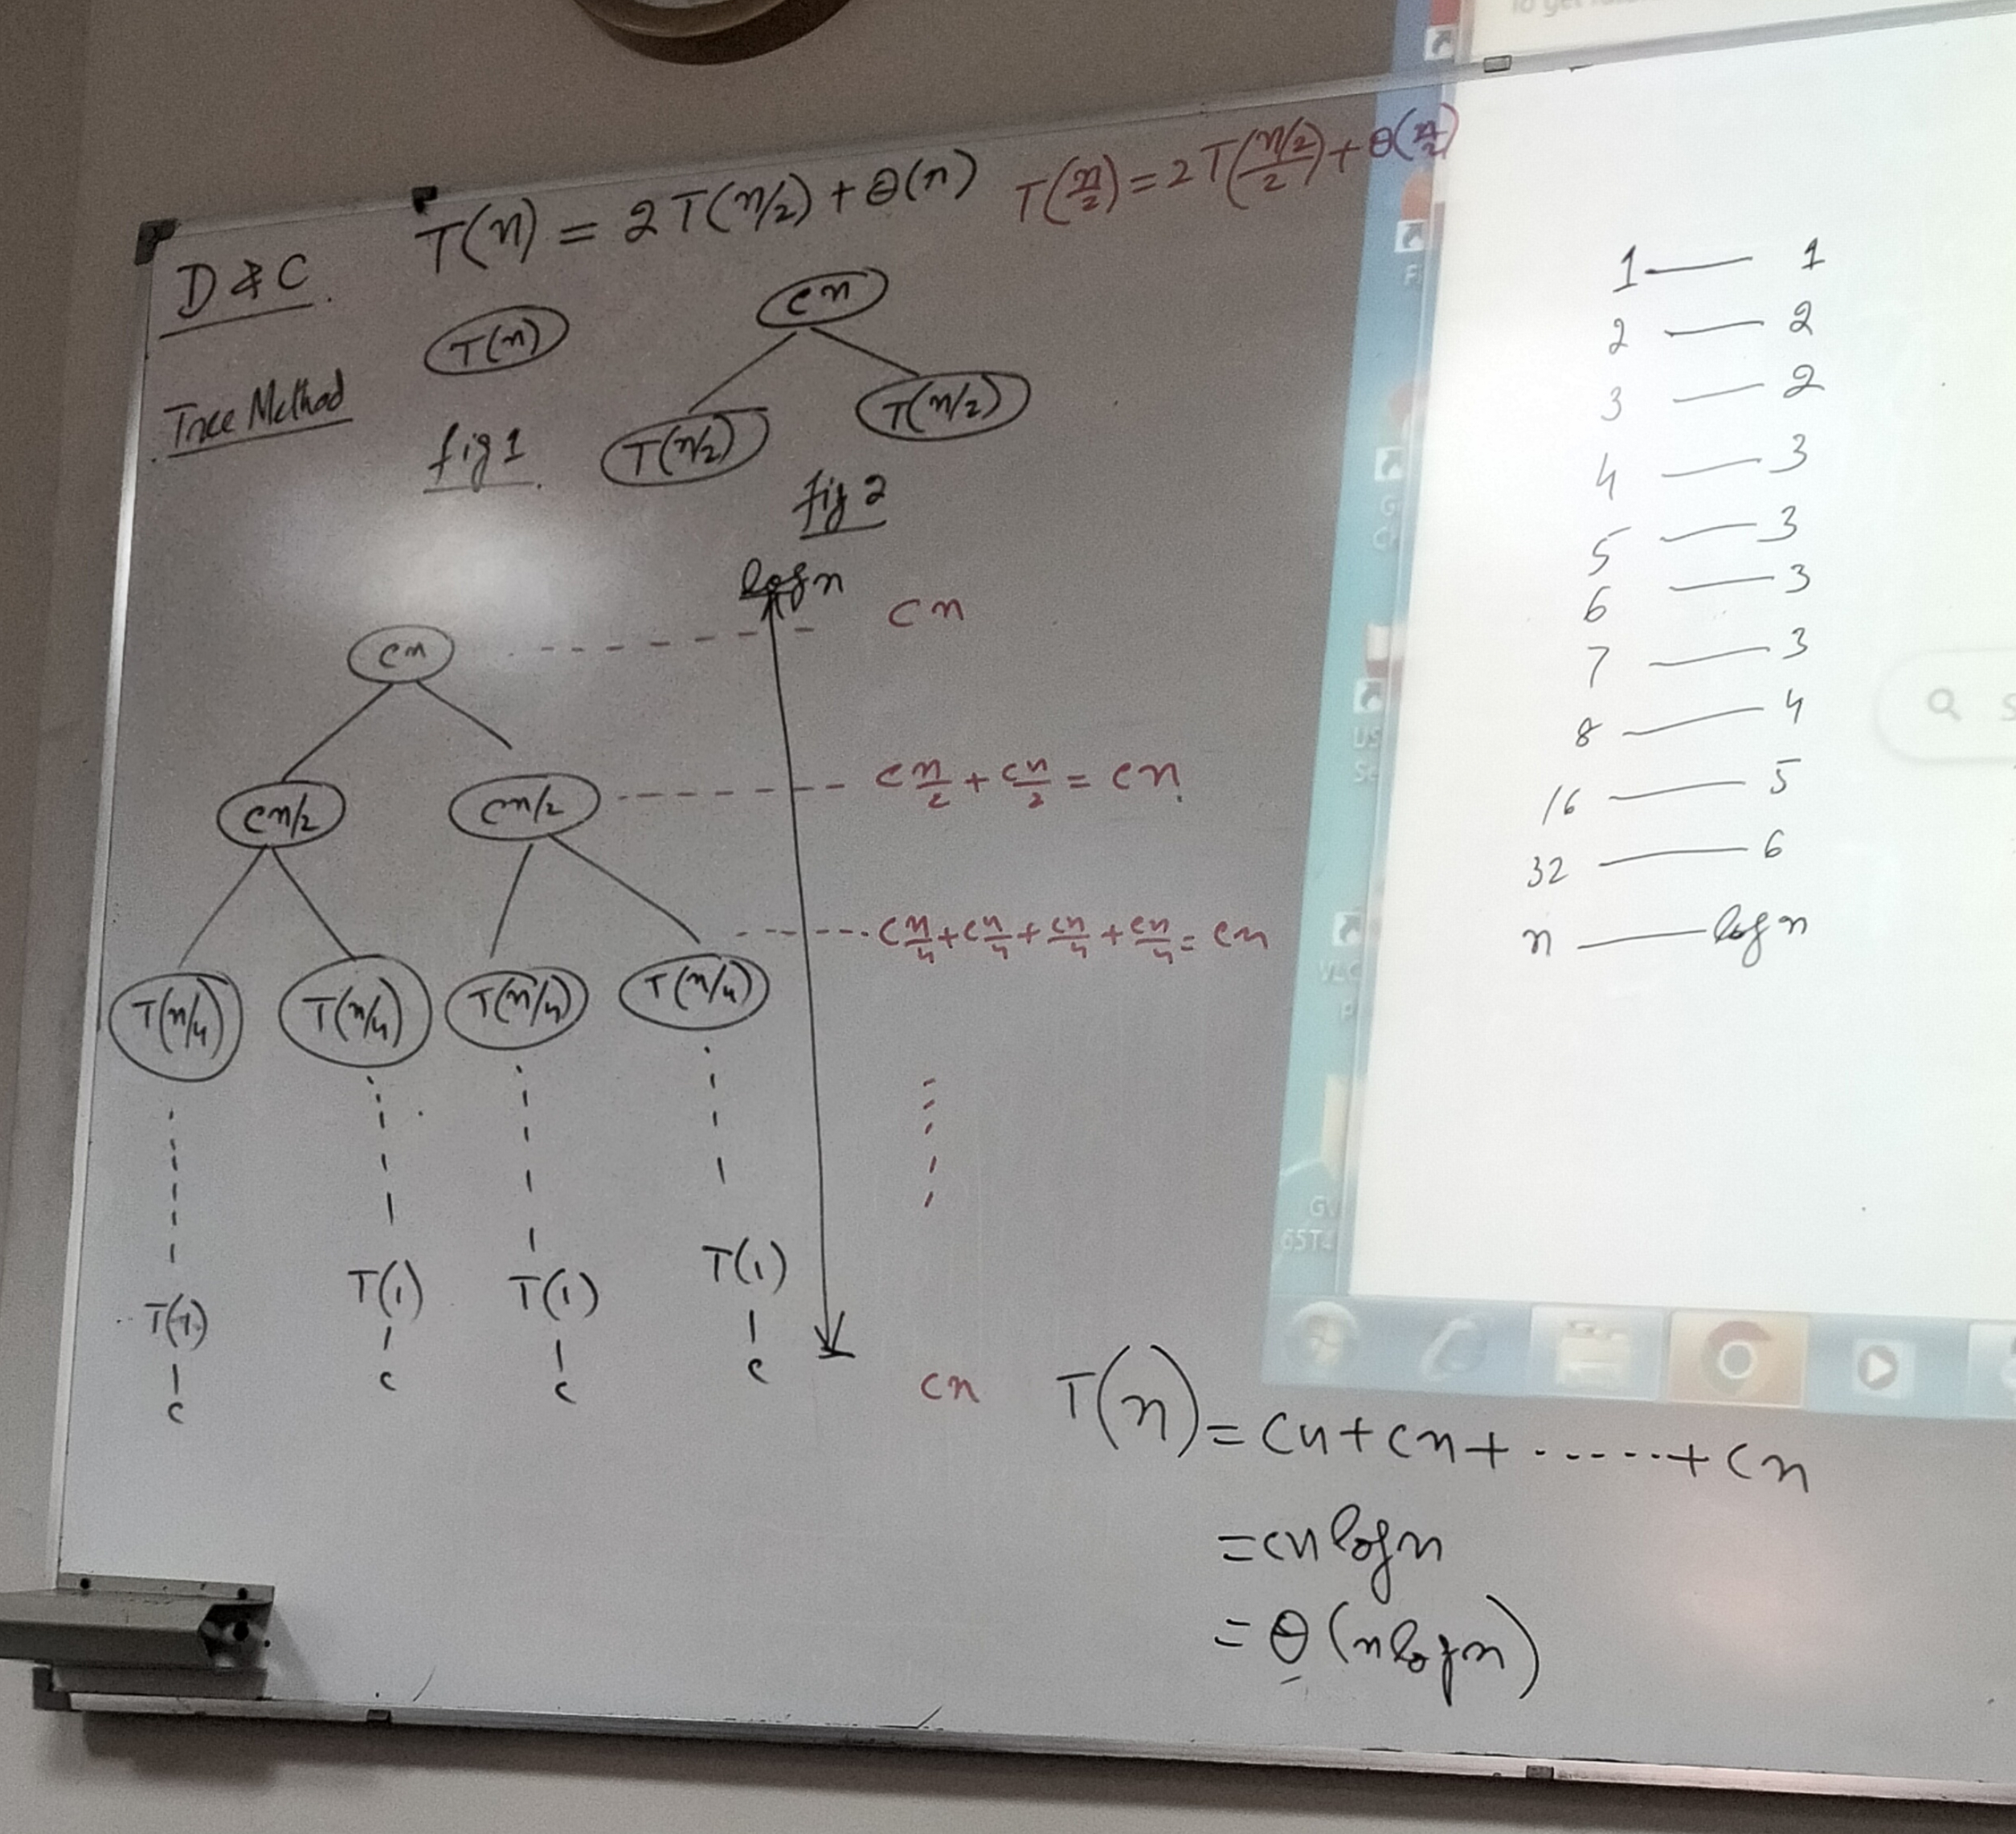 T(n) = 2T(n/2) + θ(n)
T(n/2) = 2T((n/2)/2) + θ(n/2)
D & C.
Tree Method
T(n)
fig 1
cn
T(n/2) T(n/2)
fig 2
log n
cn
cn
cn/2 cn/2
cn/2 + cn/2 = cn
T(n/4) T(n/4) T(n/4) T(n/4)
cn/4 + cn/4 + cn/4 + cn/4 = cn
T(1) T(1) T(1) T(1)
c c c c
cn
T(n) = cn + cn + ...... + cn
= cn log n
= θ(n log n)
1 — 1
2 — 2
3 — 2
4 — 3
5 — 3
6 — 3
7 — 3
8 — 4
16 — 5
32 — 6
n — log n